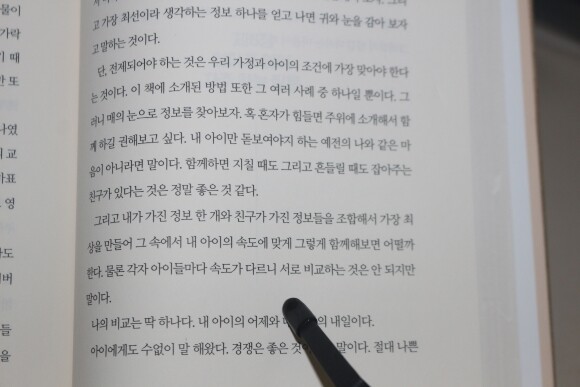 물이
가락
기 때
한 또
나였
의 교
가표
. 영
라도
이버
들
을
고 가장 최선이라 생각하는 정보 하나를 얻고 나면 귀와 눈을 감아 보자
고 말하는 것이다.
단, 전제되어야 하는 것은 우리 가정과 아이의 조건에 가장 맞아야 한다
는 것이다. 이 책에 소개된 방법 또한 그 여러 사례 중 하나일 뿐이다. 그
러니 매의 눈으로 정보를 찾아보자. 혹 혼자가 힘들면 주위에 소개해서 함
께 하길 권해보고 싶다. 내 아이만 돋보여야지 하는 예전의 나와 같은 마
음이 아니라면 말이다. 함께하면 지칠 때도 그리고 흔들릴 때도 잡아주는
친구가 있다는 것은 정말 좋은 것 같다.
그리고 내가 가진 정보 한 개와 친구가 가진 정보들을 조합해서 가장 최
상을 만들어 그 속에서 내 아이의 속도에 맞게 그렇게 함께해보면 어떨까
한다. 물론 각자 아이들마다 속도가 다르니 서로 비교하는 것은 안 되지만
말이다.
나의 비교는 딱 하나다. 내 아이의 어제와 의 내일이다.
아이에게도 수없이 말 해왔다. 경쟁은 좋은 말이다. 절대 나쁜